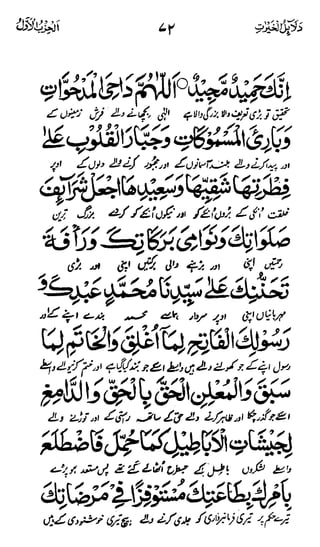 دلائل الخیرات ۷۲ الحزب الاول
اِنَّكَ حَمِيْدٌ مَّجِيْدٌ ○ اَللّٰهُمَّ دَاحِيَ الْمَدْحُوَّاتِ
تحقیق تو بڑی تعریف والا بزرگی والا ہے الٰہی بچھانے والے فرش زمینوں کے
وَبَارِئَ الْمَسْمُوْكَاتِ وَجَبَّارَ الْقُلُوْبِ عَلٰى
اور پیدا کرنے والے بلند آسمانوں کے اور مجبور کرنے والے دلوں کے اوپر
فِطْرَتِهَا شَقِيِّهَا وَسَعِيْدِهَا اجْعَلْ شَرَآئِفَ
خلقت انکی کے بروں انکے کو اور نیکوں انکے کو کردے بزرگ ترین
صَلَوَاتِكَ وَنَوَامِيَ بَرَكَاتِكَ وَرَأْفَةَ
رحمتیں اپنی اور بڑھنے والی برکتیں اپنی اور بڑی
تَحَنُّنِكَ عَلٰى سَيِّدِنَا مُحَمَّدٍ عَبْدِكَ وَ
مہربانیاں اپنی اوپر سردار ہمارے محمد بندے اپنے کے اور
رَسُوْلِكَ الْفَاتِحِ لِمَا اُغْلِقَ وَالْخَاتِمِ لِمَا
رسول اپنے کے جو کھولنے والے ہیں واسطے اسکے جو بند کیا گیا ہے اور ختم کرنیوالے واسطے
سَبَقَ وَالْمُعْلِنِ الْحَقِّ بِالْحَقِّ وَالدَّامِغِ
اسکے جو گذر چکا اور ظاہر کرنے والے حق کے ساتھ راستی کے اور توڑنے والے
لِجَيْشَاتِ الْاَبَاطِيْلِ كَمَا حُمِّلَ فَاضْطَلَعَ
واسطے لشکروں باطل کے جسطرح اٹھائے گئے تھے پس مستعد ہو پڑے
بِاَمْرِكَ بِطَاعَتِكَ مُسْتَوْفِزًا فِيْ مَرْضَاتِكَ
تیرے حکم پر تیری فرمانبرداری کو جلدی کرنے والے بیچ تیری خوشنودی کے ہیں